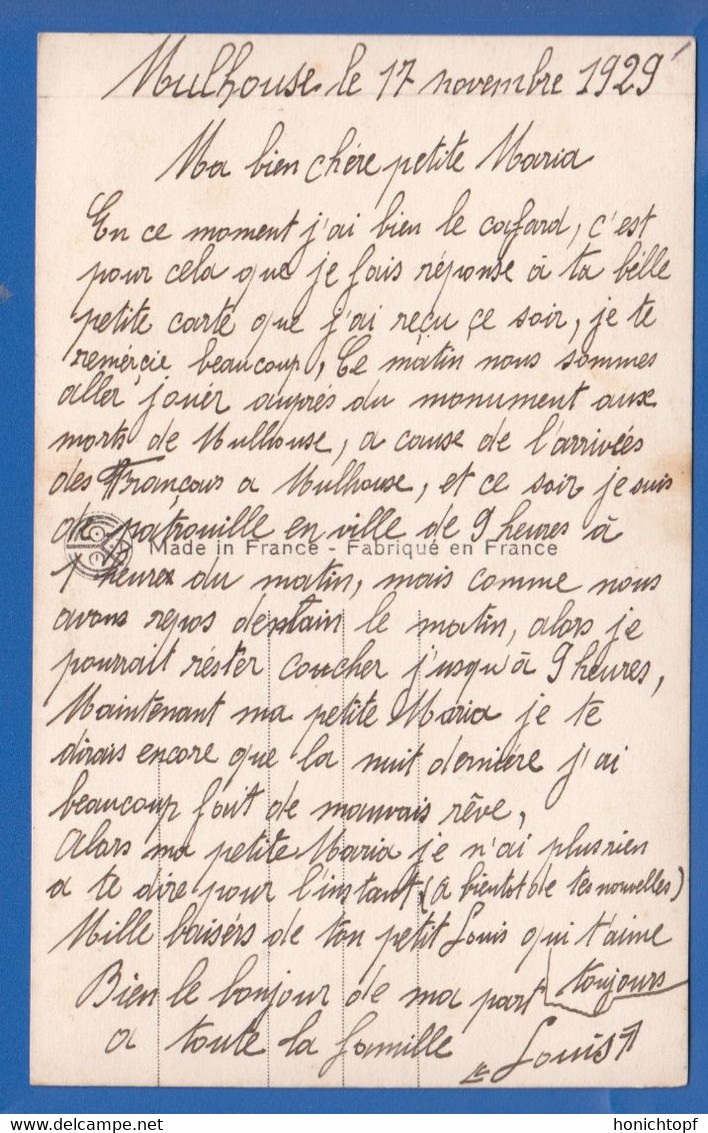 Mulhouse le 17 novembre 1929
Ma bien chére petite Maria
En ce moment j'ai bien le cafard, c'est
pour cela que je fais réponse à ta bélle
petite carte que j'ai reçu ce soir, je te
remérçie beaucoup, Ce matin nous sommes
aller jouér auprés du monument aux
morts de Mulhouse, a cause de l'arrivées
des Français a Mulhouse, et ce soir je suis
de pátrouille en ville de 9 heures à
Made in France - Fabriqué en France
1 heure du matin, mais comme nous
avons repos demain le matin, alors je
pourrait réster coucher jusqu'à 9 heures,
Maintenant ma petite Maria je te
dirais encore que la nuit derniére j'ai
beaucoup fait de mauvais rêve,
Alors ma petite Maria je n'ai plus rien
a te dire pour l'instant, (a bientot de tes nouvelles)
Mille baisérs de ton petit Louis qui t'aime
toujours
Bien le bonjour de ma part
a toute la famille
Louis
honichtopf